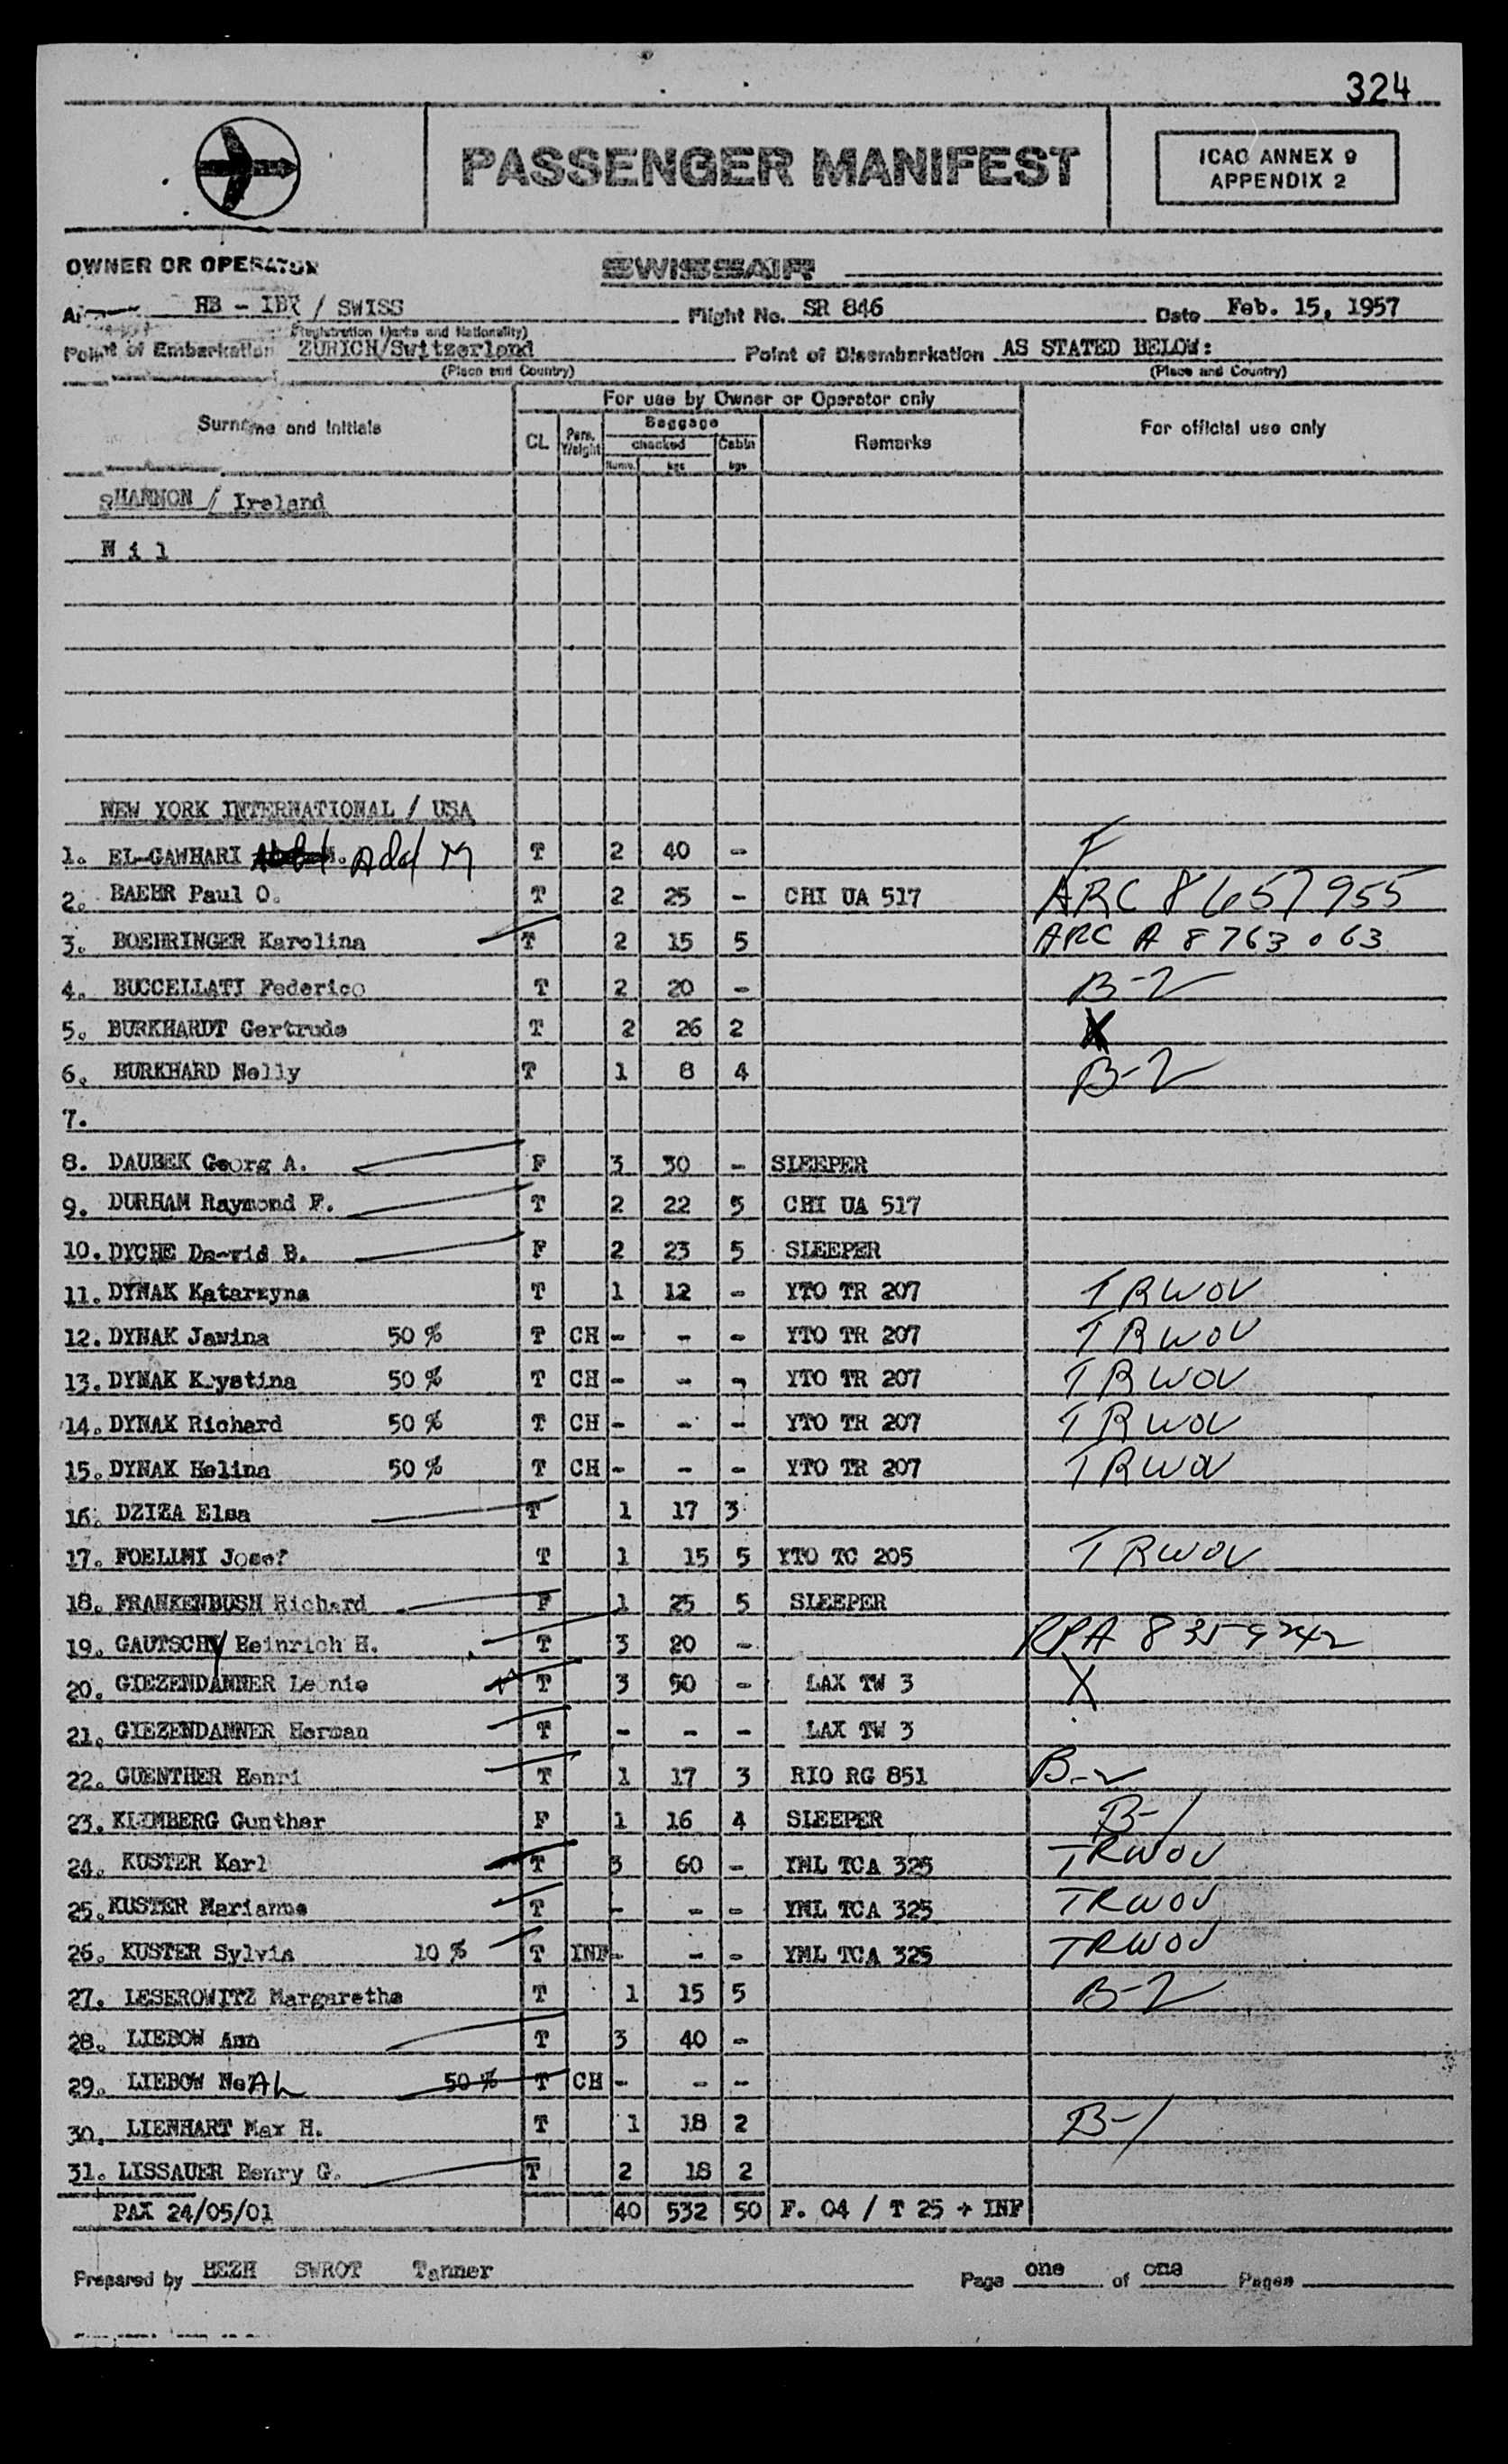 324
PASSENGER MANIFEST
ICAO ANNEX 9
APPENDIX 2
OWNER OR OPERATOR SWISSAIR
HB - / SWISS Flight No. SR 846 Date Feb. 15, 1957
(Registration Marks and Nationality)
Point of Embarkation ZURICH/Switzerland Point of Disembarkation AS STATED BELOW:
(Place and Country) (Place and Country)
For use by Owner or Operator only
Surname and Initials CL Pers. Weight Baggage checked Cabin Remarks For official use only
Nums. kgs kgs
SHANNON / Ireland
N i l
NEW YORK INTERNATIONAL / USA
1. EL-GAWHARI Add M T 2 40 - F
2. BAEHR Paul O. T 2 25 - CHI UA 517 ARC 8657955
3. BOEHRINGER Karolina T 2 15 5 ARC A 8763063
4. BUCCELLATI Federico T 2 20 - B-2
5. BURKHARDT Gertrude T 2 26 2 X
6. BURKHARD Nelly T 1 8 4 B-2
7.
8. DAUBEK Georg A. F 3 30 - SLEEPER
9. DURHAM Raymond F. T 2 22 5 CHI UA 517
10. DYCHE David B. F 2 23 5 SLEEPER
11. DYNAK Katarzyna T 1 12 - YTO TR 207 TRWOV
12. DYNAK Jawina 50 % T CH - - - YTO TR 207 TRWOV
13. DYNAK Krystina 50 % T CH - - - YTO TR 207 TRWOV
14. DYNAK Richard 50 % T CH - - - YTO TR 207 TRWOV
15. DYNAK Helina 50 % T CH - - - YTO TR 207 TRWOV
16. DZIZA Elsa T 1 17 3
17. FOELLMI Josef T 1 15 5 YTO TC 205 TRWOV
18. FRANKENBUSH Richard F 1 25 5 SLEEPER
19. GAUTSCHY Heinrich H. T 3 20 - RPA 8359242
20. GIEZENDANNER Leonie T 3 50 - LAX TW 3 X
21. GIEZENDANNER Herman T - - - LAX TW 3
22. GUENTHER Henri T 1 17 3 RIO RG 851 B-2
23. KLIMBERG Gunther F 1 16 4 SLEEPER B-1
24. KUSTER Karl T 3 60 - YML TCA 325 TRWOV
25. KUSTER Marianne T - - - YML TCA 325 TRWOV
26. KUSTER Sylvia 10 % T INF - - - YML TCA 325 TRWOV
27. LESEROWITZ Margarethe T 1 15 5 B-2
28. LIEBOW Ann T 3 40 -
29. LIEBOW NeAL 50 % T CH - - -
30. LIENHART Max H. T 1 18 2 B-1
31. LISSAUER Henry G. T 2 18 2
PAX 24/05/01 40 532 50 F. 04 / T 25 + INF
Prepared by HEZH SWROT Tanner Page one of one Pages